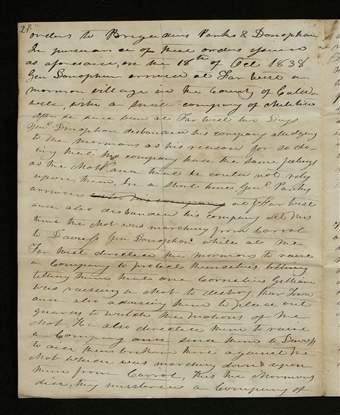 orders to Brigadiers Parks & Donophan
In pursuance of these orders given
as aforesaid, on the 18th of Oct 1838
Gen Donophan arrived at Far West a
mormon village in the County of Caldw
well, with a small company of militia
After he had been at Far West two days
Gen. Donophan disbanded his company alledging
to the Mormons as his reason for so do
ing that his company had the same feelings
as the Mob and that he could not rely
upon them, in a short time Genl Parks
arrived at Far West
and also disbanded his company at this
time the Mob was marching from Carrol
to Daviess Gen. Donophan while at the
Far West directed the mormons to raise
a Company to protect themselves telling
them that one Cornelius Gillium
was raising a Mob to destroy their Town
and also advising them to place out
guards to watch the motions of the
Mob. He also directed them to raise
a Company and send them to Daviess
to aid their brethren there against the
Mob which was marching down upon
them from Carrol, this the Mormons
did, they mustered a Company of